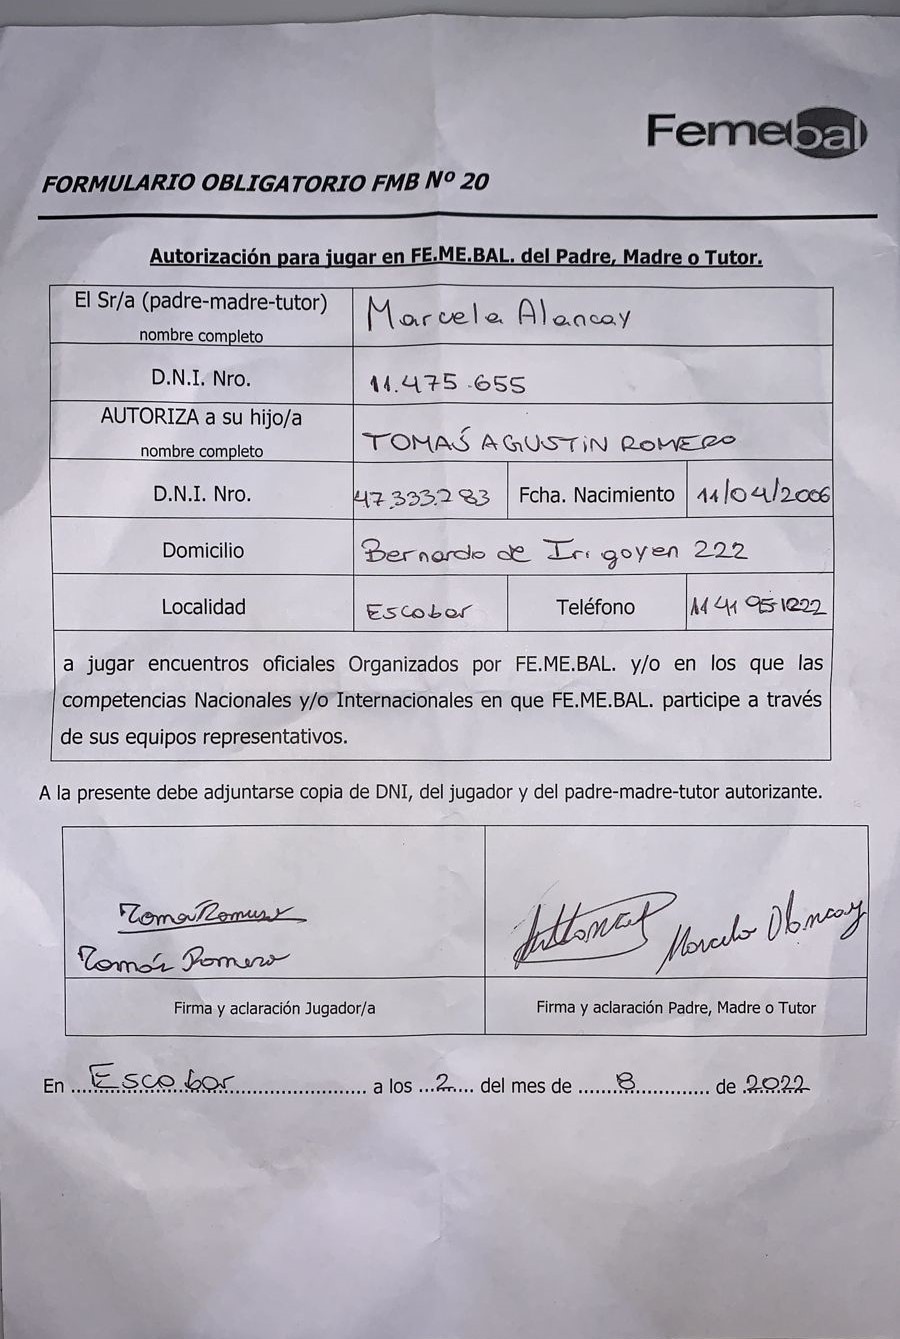 Femebal
FORMULARIO OBLIGATORIO FMB Nº 20
Autorización para jugar en FE.ME.BAL. del Padre, Madre o Tutor.
El Sr/a (padre-madre-tutor)
nombre completo
Marcela Alancay
D.N.I. Nro.
11.475.655
AUTORIZA a su hijo/a
nombre completo
TOMAŚ AGUSTIN ROMERO
D.N.I. Nro.
47.333.283
Fcha. Nacimiento
11/04/2006
Domicilio
Bernardo de Irigoyen 222
Localidad
Escobar
Teléfono
a jugar encuentros oficiales Organizados por FE.ME.BAL. y/o en los que las
competencias Nacionales y/o Internacionales en que FE.ME.BAL. participe a través
de sus equipos representativos.
A la presente debe adjuntarse copia de DNI, del jugador y del padre-madre-tutor autorizante.
Toma Romero
Tomás Romero
Marcela Alancay
Firma y aclaración Jugador/a
Firma y aclaración Padre, Madre o Tutor
En ....Escobar.......................... a los ...2.... del mes de .......8............. de .2022